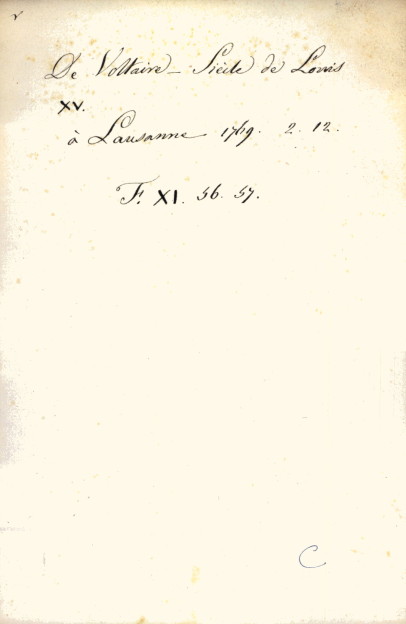 De Voltaire – Siécle de Louis
XV.
à Lausanne 1769. 2. 12.
F. XI. 56. 57.
C